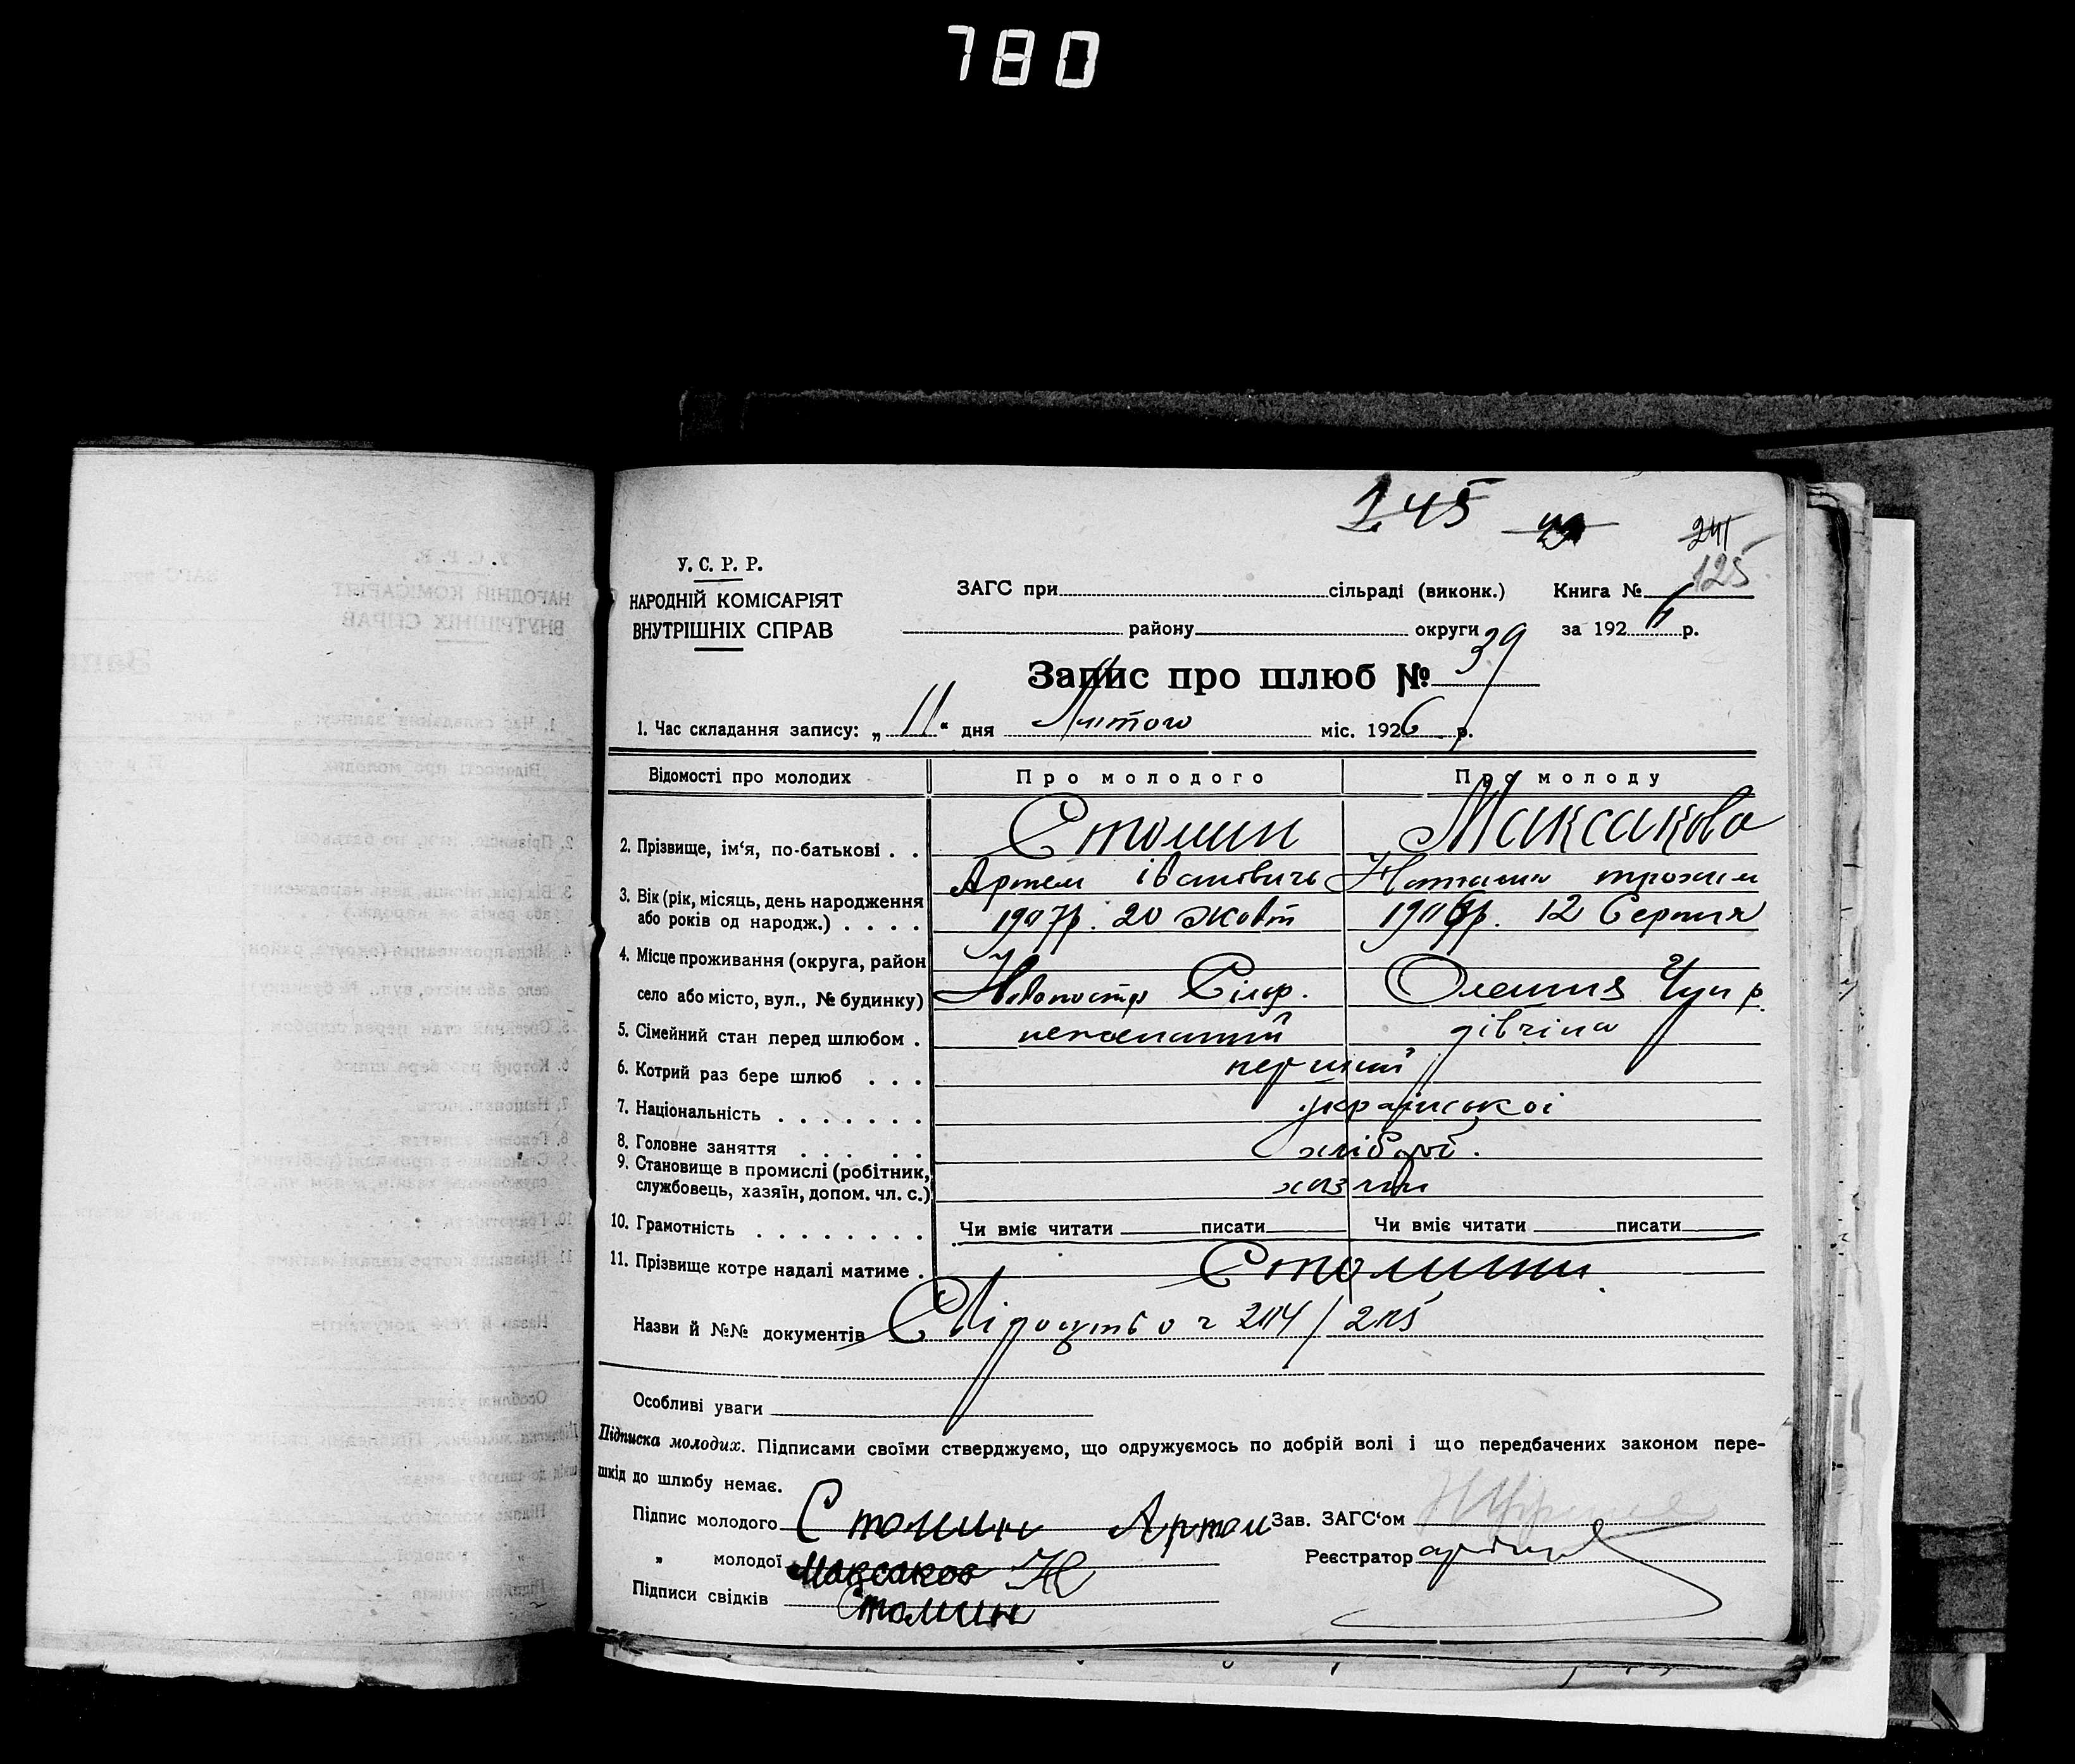 780
145
241
125
У. С. Р. Р.
НАРОДНІЙ КОМІСАРІЯТ
ВНУТРІШНІХ СПРАВ
ЗАГС при сільраді (виконк.) Книга №
району округи за 1926 р.
Запис про шлюб № 39
1. Час складання запису: „ 11 “ дня Лютого міс. 1926 р.
Відомості про молодих Про молодого Про молоду
2. Прізвище, ім‘я, по-батькові . . Столин Максакова
Артем івановичь Наталия
3. Вік (рік, місяць, день народження або років од народж.) . . . . 1907р. 20 Жовт 1906р. 12 Серпня
4. Місце проживання (округа, район
село або місто, вул., № будинку)
5. Сімейний стан перед шлюбом . нежонатий дівчіна
6. Котрий раз бере шлюб . . . перший
7. Національність . . . . . . . української
8. Головне заняття . . . . . хлібороб.
9. Становище в промислі (робітник, службовець, хазяїн, допом. чл. с.) хазяїн
10. Грамотність . . . . . . . . Чи вміє читати писати Чи вміє читати писати
11. Прізвище котре надалі матиме . Столини.
Назви й №№ документів Свідоцтво ч 204/205
Особливі уваги
Підписка молодих. Підписами своїми стверджуємо, що одружуємось по добрій волі і що передбачених законом пере-
шкід до шлюбу немає.
Підпис молодого Столин Артом Зав. ЗАГС‘ом
„ молодої Максакова Н Реєстратор
Підписи свідків Столин